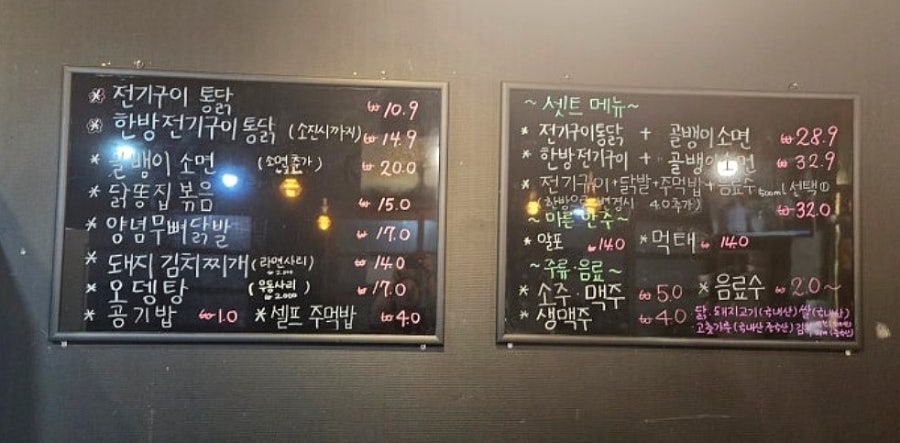 전기구이 통닭 ₩10.9
한방전기구이통닭 (소진시까지) ₩14.9
골뱅이소면 (소면추가) ₩20.0
닭똥집볶음 ₩15.0
양념무뼈닭발 ₩17.0
돼지김치찌개 (라면사리) ₩14.0
오뎅탕 (우동사리 ₩2.000) ₩17.0
공기밥 ₩1.0 셀프 주먹밥 ₩4.0
~셋트 메뉴~
전기구이통닭 + 골뱅이소면 ₩28.9
한방전기구이 + 골뱅이소면 ₩32.9
전기구이+닭발+주먹밥+음료수 500ml 선택①
(한방으로 변경시 4.0추가) ₩32.0
~마른안주~
알포 ₩14.0 먹태 ₩14.0
~주류·음료~
소주·맥주 ₩5.0 음료수 ₩2.0~
생맥주 ₩4.0 닭.돼지고기(국내산)쌀(국내산)
고춧가루(국내산 중국산)